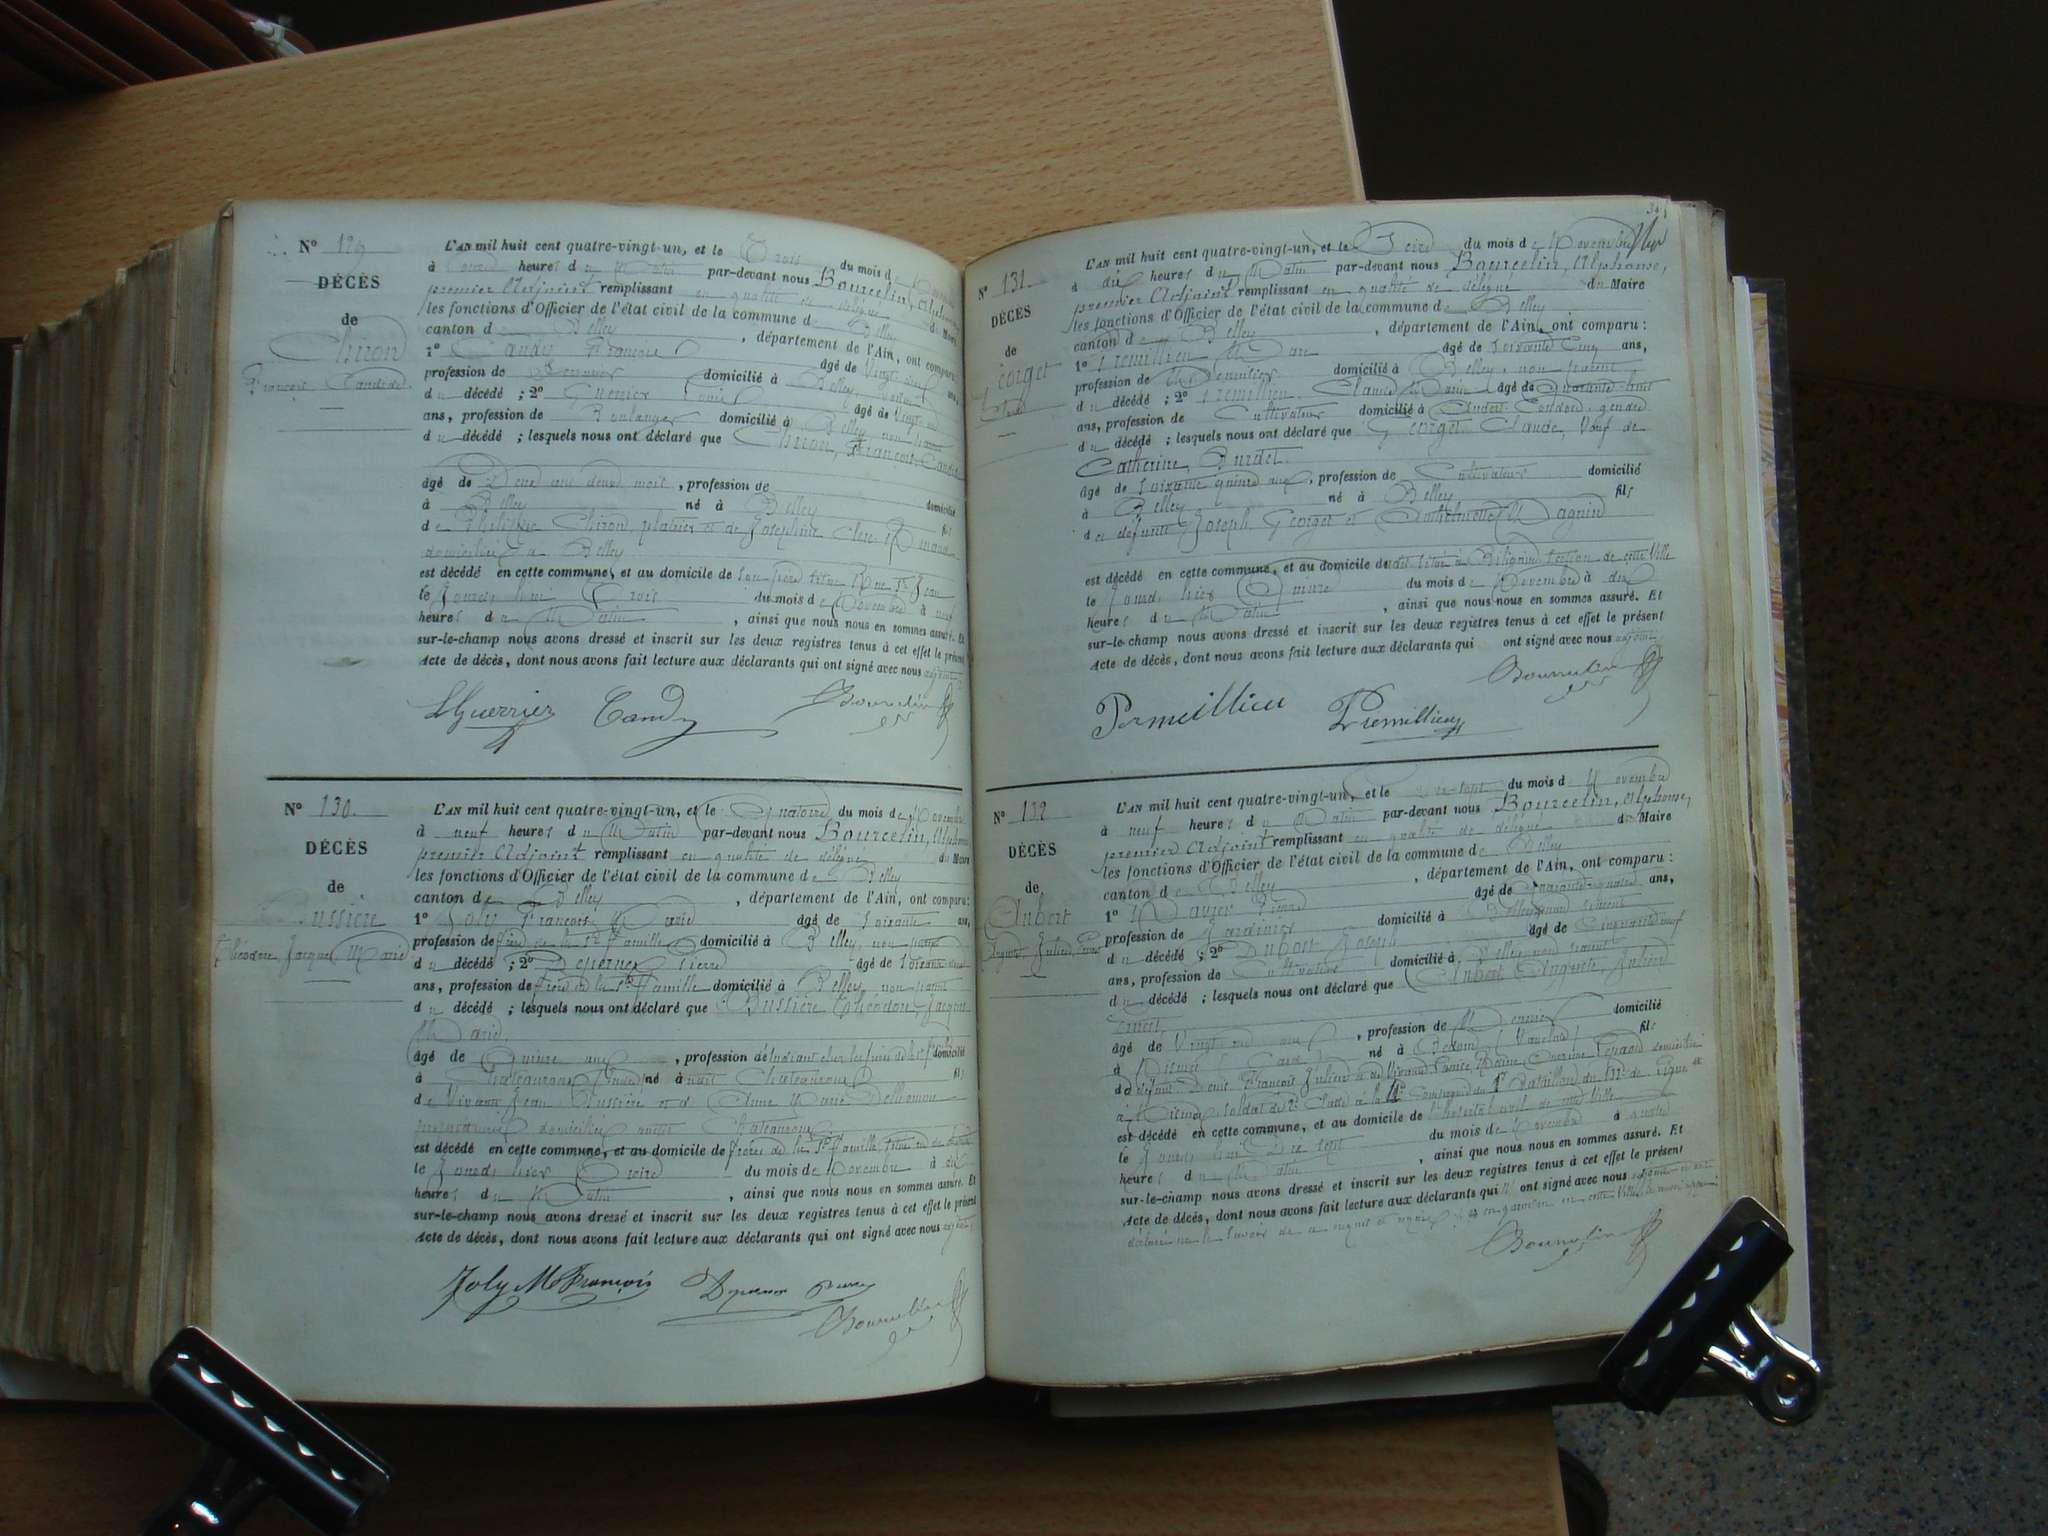 N° 129
DÉCÈS
de
Chiron
François Candide
L'AN mil huit cent quatre-vingt-un, et le Trois du mois de
à onze heures du Matin par-devant nous Bourcelin, Alphonse,
premier Adjoint remplissant en qualité de délégué du Maire
les fonctions d'Officier de l'état civil de la commune de Belley
canton de Belley, département de l'Ain, ont comparu :
1° Candy François âgé de Vingt ans,
profession de domicilié à Belley, voisin
du décédé ; 2° Guerrier Louis âgé de Vingt
ans, profession de Boulanger domicilié à Belley, non parent
du décédé ; lesquels nous ont déclaré que Chiron, François, Candide
âgé de Deux ans deux mois, profession de domicilié
à Belley né à Belley fils
de Philippe Chiron, platrier et de Joséphine
domiciliés à Belley
est décédé en cette commune, et au domicile de son père situé Rue St Jean
le Jourd'hui Trois du mois de Novembre à neuf
heures du Matin, ainsi que nous nous en sommes assuré. Et
sur-le-champ nous avons dressé et inscrit sur les deux registres tenus à cet effet le présent
Acte de décès, dont nous avons fait lecture aux déclarants qui ont signé avec nous adjoint
LGuerrier Candy Bourcelin
N° 130
DÉCÈS
de
Bussière
Théodore Jacques Marie
L'AN mil huit cent quatre-vingt-un, et le Quatorze du mois de Novembre
à neuf heures du Matin par-devant nous Bourcelin, Alphonse
premier Adjoint remplissant en qualité de délégué du Maire
les fonctions d'Officier de l'état civil de la commune de Belley
canton de Belley, département de l'Ain, ont comparu :
1° Joly François Marie âgé de Soixante ans,
profession de frère de la Ste Famille domicilié à Belley, non parent
du décédé ; 2° Depierre Pierre âgé de Soixante
ans, profession de frère de la Ste Famille domicilié à Belley, non parent
du décédé ; lesquels nous ont déclaré que Bussière, Théodore, Jacques
Marie,
âgé de Quinze ans, profession d'étudiant chez les frères de la Ste Flle domicilié
à Chateauroux (Indre) né à audit Chateauroux fils
de Vivants Jean Bussière et d'Anne Marie
propriétaires domiciliés audit Chateauroux
est décédé en cette commune, et au domicile de frères de la Ste Famille, situé
le Jourd'hier Treize du mois de Novembre à dix
heures du Matin, ainsi que nous nous en sommes assuré. Et
sur-le-champ nous avons dressé et inscrit sur les deux registres tenus à cet effet le présent
Acte de décès, dont nous avons fait lecture aux déclarants qui ont signé avec nous adjoint
Joly M François Depierre Pierre
Bourcelin
N° 131
DÉCÈS
de
Georget
Claude
L'AN mil huit cent quatre-vingt-un, et le Seize du mois de Novembre
à dix heures du Matin par-devant nous Bourcelin, Alphonse,
premier Adjoint remplissant en qualité de délégué du Maire
les fonctions d'Officier de l'état civil de la commune de Belley
canton de Belley, département de l'Ain, ont comparu :
1° Premillieu Marc âgé de Soixante Cinq ans,
profession de Menuisier domicilié à Belley, non parent
du décédé ; 2° Premillieu, Claude Marie âgé de Quarante huit
ans, profession de Cultivateur domicilié à Andert-Condon, gendre
du décédé ; lesquels nous ont déclaré que Georget Claude, Veuf de
Catherine Burdet
âgé de Soixante quinze ans, profession de Cultivateur domicilié
à Belley né à Belley fils
de défunts Joseph Georget et Anthelmette Magnin
est décédé en cette commune, et au domicile dudit situé à section de cette Ville
le Jourd'hier Quinze du mois de Novembre à dix
heures du Matin, ainsi que nous nous en sommes assuré. Et
sur-le-champ nous avons dressé et inscrit sur les deux registres tenus à cet effet le présent
Acte de décès, dont nous avons fait lecture aux déclarants qui ont signé avec nous adjoint
Bourcelin
Permeillieu Premillieu
N° 132
DÉCÈS
de
Aubert
Auguste, Julien,
L'AN mil huit cent quatre-vingt-un, et le Dix-Sept du mois de Novembre
à neuf heures du Matin par-devant nous Bourcelin, Alphonse,
premier Adjoint remplissant en qualité de délégué du Maire
les fonctions d'Officier de l'état civil de la commune de Belley
canton de Belley, département de l'Ain, ont comparu :
1° Pierre âgé de Quarante quatre ans,
profession de Jardinier domicilié à Belley, non parent
du décédé ; 2° Dubost Joseph âgé de Cinquante neuf
ans, profession de Cultivateur domicilié à Belley, non parent
du décédé ; lesquels nous ont déclaré que Aubert Auguste, Julien
âgé de Vingt deux ans, profession de domicilié
à né à Bedoin (Vaucluse) fils
de défunt Denis François Julien et de Vivante domiciliée
à soldat de 2e Classe à la 4e Compagnie du 1er Bataillon du de Ligne
est décédé en cette commune, et au domicile de l'hôpital civil de cette Ville
le Jourd'hui Dix sept du mois de Novembre à
heures du Matin, ainsi que nous nous en sommes assuré. Et
sur-le-champ nous avons dressé et inscrit sur les deux registres tenus à cet effet le présent
Acte de décès, dont nous avons fait lecture aux déclarants qui ont signé avec nous
déclaré ne le savoir de ce requis en garnison en cette Ville
Bourcelin